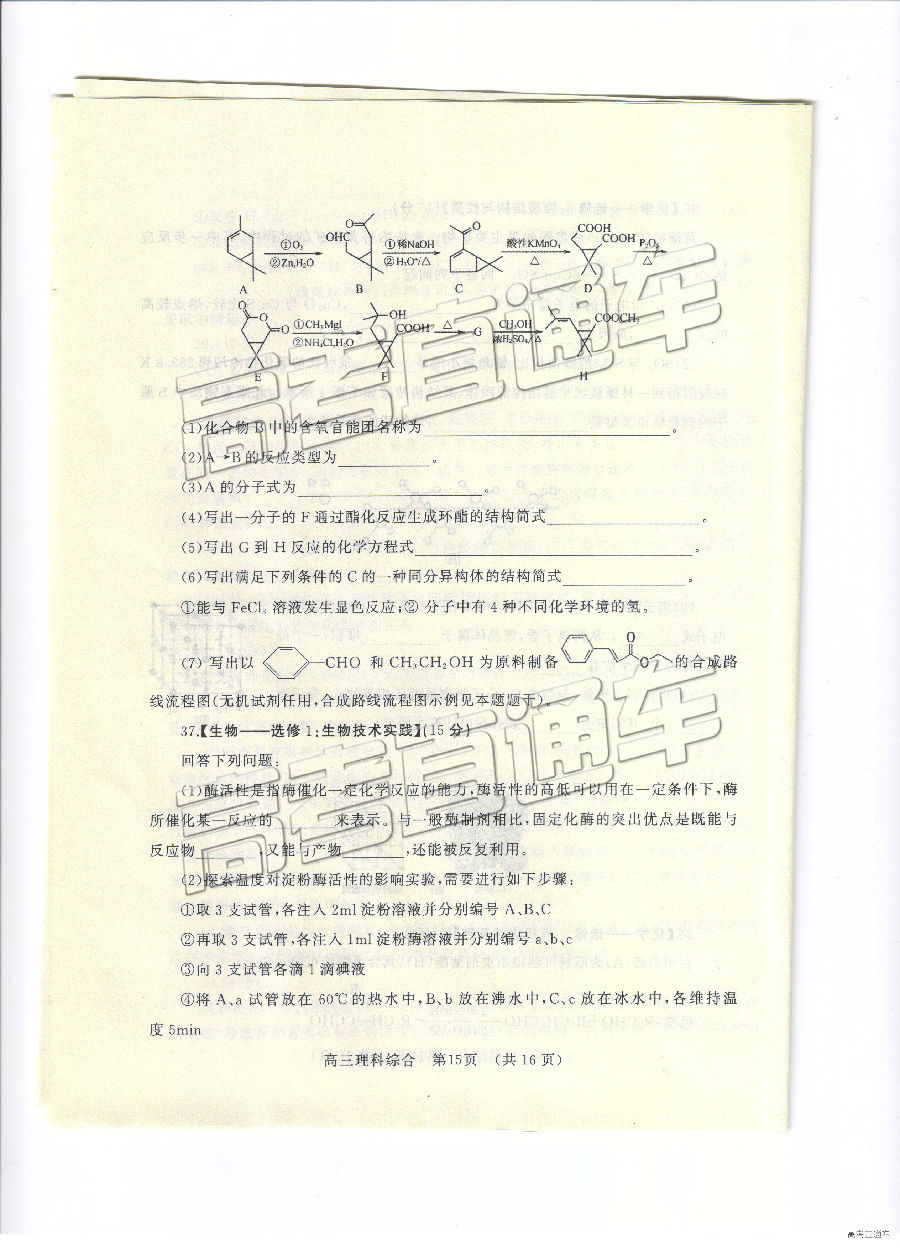 ①O₃
②Zn,H₂O
OHC
O
①稀NaOH
②H₃O⁺/△
O
酸性KMnO₄
△
COOH
COOH
P₂O₅
△
A
B
C
D
O
O
O
①CH₃MgI
②NH₄Cl,H₂O
OH
COOH
△
G
CH₃OH
浓H₂SO₄/△
COOCH₃
E
F
H
(1)化合物B中的含氧官能团名称为。
(2)A→B的反应类型为。
(3)A的分子式为。
(4)写出一分子的F通过酯化反应生成环酯的结构简式。
(5)写出G到H反应的化学方程式。
(6)写出满足下列条件的C的一种同分异构体的结构简式。
①能与FeCl₃溶液发生显色反应;②分子中有4种不同化学环境的氢。
(7)写出以 —CHO 和CH₃CH₂OH为原料制备 O O 的合成路
线流程图(无机试剂任用,合成路线流程图示例见本题题干)。
37.【生物——选修1:生物技术实践】(15分)
回答下列问题:
(1)酶活性是指酶催化一定化学反应的能力,酶活性的高低可以用在一定条件下,酶
所催化某一反应的来表示。与一般酶制剂相比,固定化酶的突出优点是既能与
反应物,又能与产物,还能被反复利用。
(2)探索温度对淀粉酶活性的影响实验,需要进行如下步骤:
①取3支试管,各注入2ml淀粉溶液并分别编号A、B、C
②再取3支试管,各注入1ml淀粉酶溶液并分别编号a、b、c
③向3支试管各滴1滴碘液
④将A、a试管放在60℃的热水中,B、b放在沸水中,C、c放在冰水中,各维持温
度5min
高三理科综合 第15页 (共16页)
高考直通车
高考直通车
高考直通车